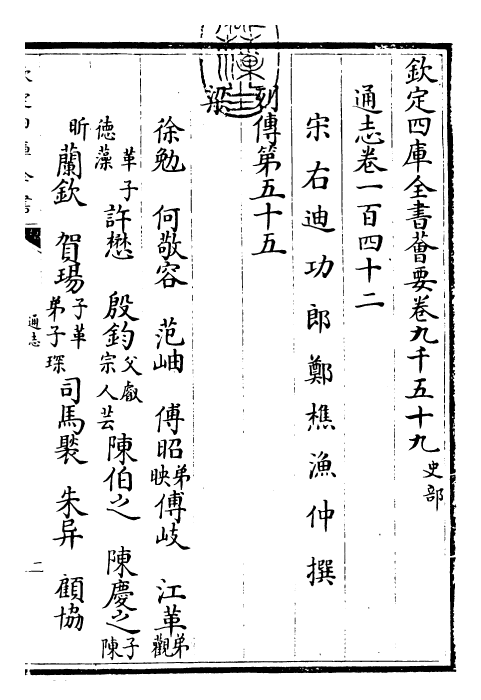 欽定四庫全書薈要卷九千五十九 史部
通志卷一百四十二
宋右迪功郎鄭樵漁仲撰
列傳第五十五
梁
徐勉 何敬容 范岫 傅昭 弟映 傅岐 江革 弟觀
革子德藻 許懋 殷鈞 父叡宗人芸 陳伯之 陳慶之 子陳
昕 蘭欽 賀瑒 子革弟子琛 司馬褧 朱异 顧協
通志
二